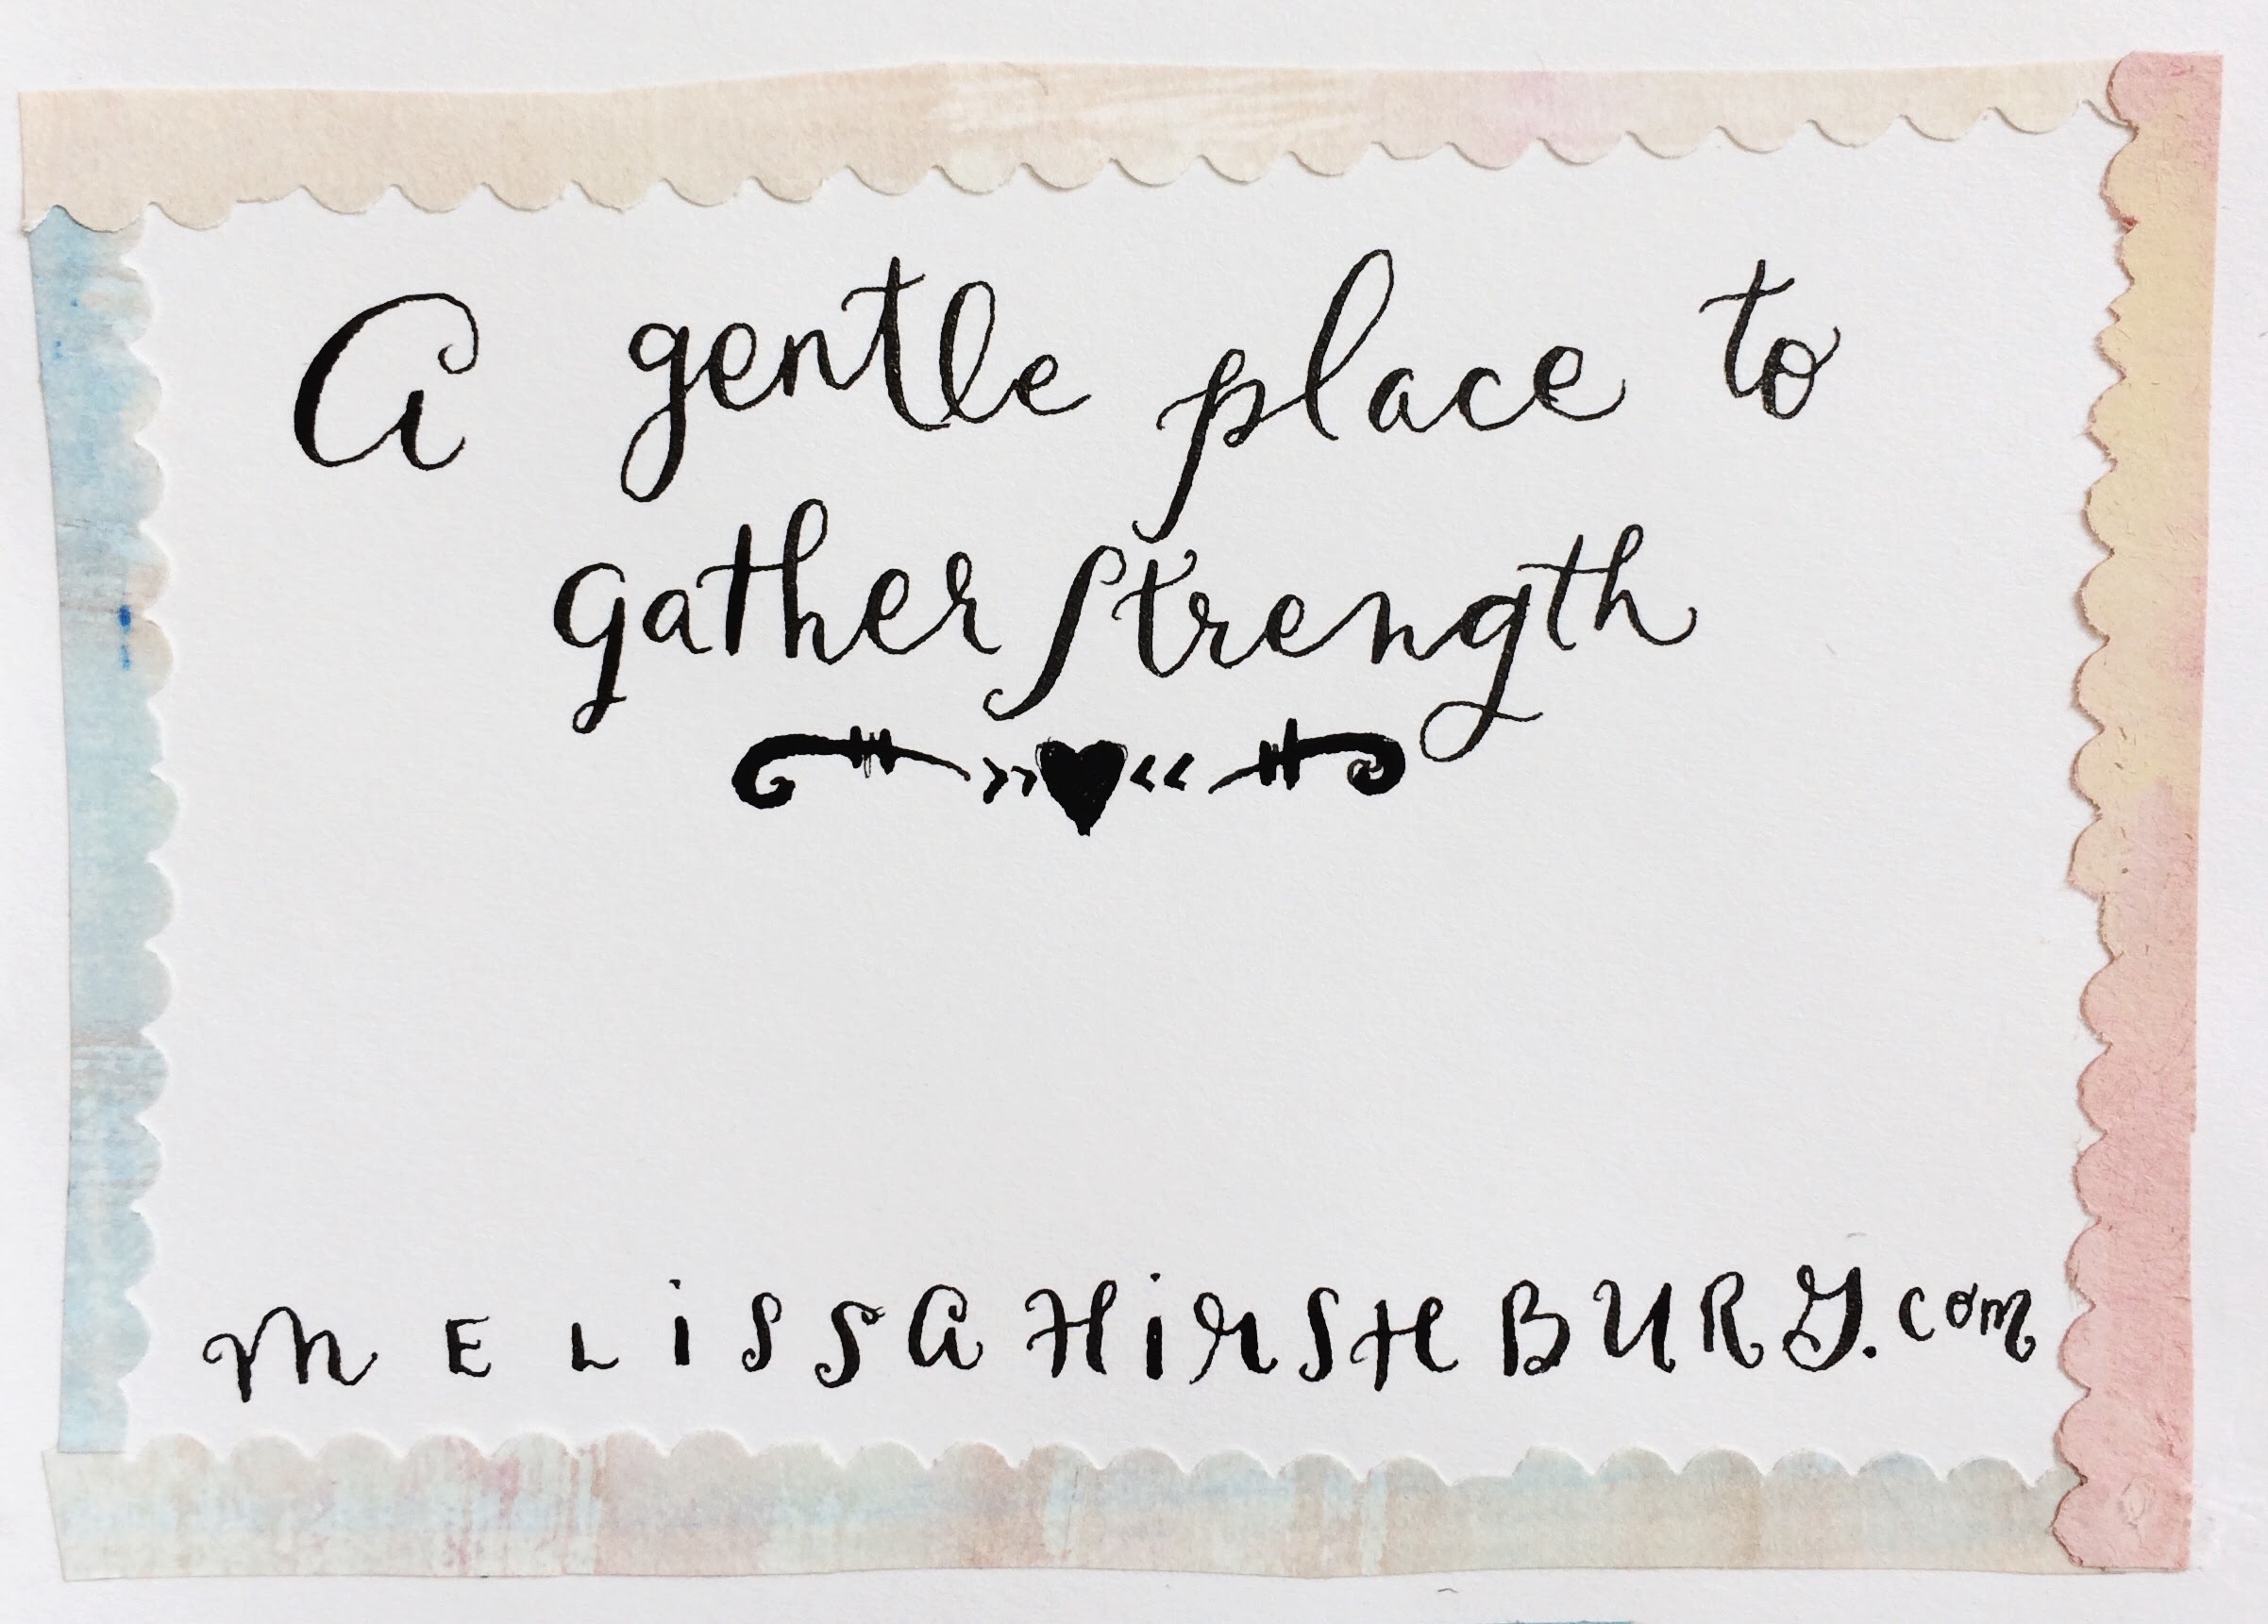 A gentle place to
gather strength
MELiSSAHiRSHBURG.com